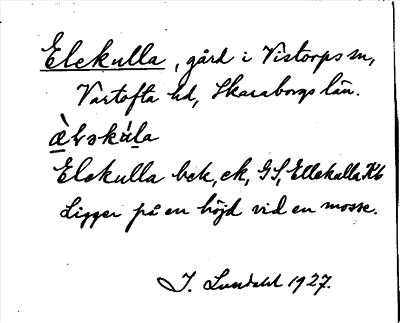 Elekulla, gård i Vistorps sn,
Vartofta hd, Skaraborgs län.
Elekulla bek, ek, GS, Ellekulla Kb
Ligger på en höjd vid en mosse.
J. Lundahl 1927.